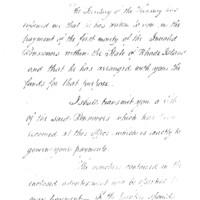 The Secretary of the Treasury has
informed me that he has written to you, on the
payment of the first moiety of the Invalid
Pensioners within the State of Rhode Island
and that he has arranged with you the
funds for that purpose.
I shall transmit you a list
of the said Pensioners which has been
received at this Office, which is exactly to
govern your payments.
The vouchers contained in the
enclosed advertisement must be exhibited to
your payment. If the Invalids should